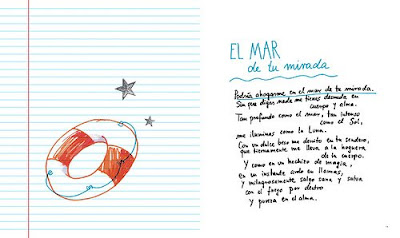 EL MAR
de tu mirada
Podría ahogarme en el mar de tu mirada.
Sin que digas nada me tienes desnuda en
cuerpo y alma.
Tan profundo como el mar, tan intenso
como el Sol,
me iluminas como la Luna.
Con un dulce beso me derrito en tu sendero,
que tiernamente me lleva a la hoguera
de tu cuerpo.
Y como en un hechizo de magia,
en un instante ardo en llamas,
y milagrosamente salgo sana y salva
con el fuego por dentro
y pureza en el alma.